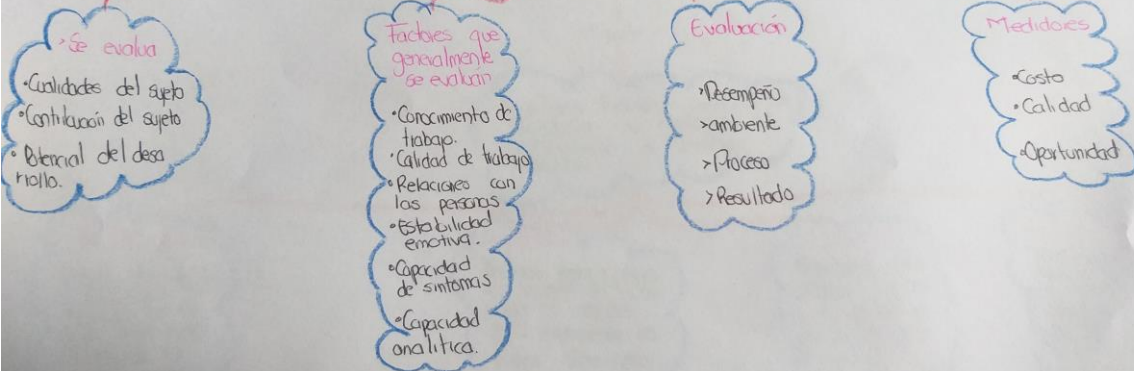 >Se evalua
•Cualidades del sujeto
•Contribución del sujeto
•Potencial del desa
rrollo.
Factores que
generalmente
se evaluán
•Conocimiento de
trabajo.
•Calidad de trabajo
•Relaciones con
las personas
•Estabilidad
emotiva.
•Capacidad
de sintomas
•Capacidad
analítica.
Evaluación
>Desempeño
>ambiente
>Proceso
>Resultado
Medidores
•Costo
•Calidad
•Oportunidad